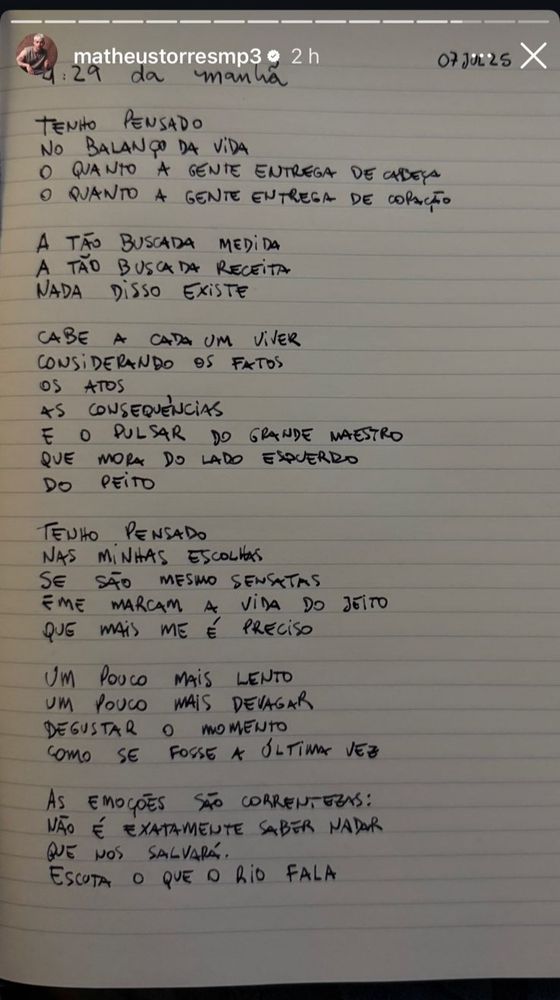 matheustorresmp3 2 h
07 JUL 25
4:29 da manhã
TENHO PENSADO
NO BALANÇO DA VIDA
O QUANTO A GENTE ENTREGA DE CABEÇA
O QUANTO A GENTE ENTREGA DE CORAÇÃO
A TÃO BUSCADA MEDIDA
A TÃO BUSCADA RECEITA
NADA DISSO EXISTE
CABE A CADA UM VIVER
CONSIDERANDO OS FATOS
OS ATOS
AS CONSEQUÊNCIAS
E O PULSAR DO GRANDE MAESTRO
QUE MORA DO LADO ESQUERDO
DO PEITO
TENHO PENSADO
NAS MINHAS ESCOLHAS
SE SÃO MESMO SENSATAS
E ME MARCAM A VIDA DO JEITO
QUE MAIS ME É PRECISO
UM POUCO MAIS LENTO
UM POUCO MAIS DEVAGAR
DEGUSTAR O MOMENTO
COMO SE FOSSE A ÚLTIMA VEZ
AS EMOÇÕES SÃO CORRENTEZAS:
NÃO É EXATAMENTE SABER NADAR
QUE NOS SALVARÁ.
ESCUTA O QUE O RIO FALA